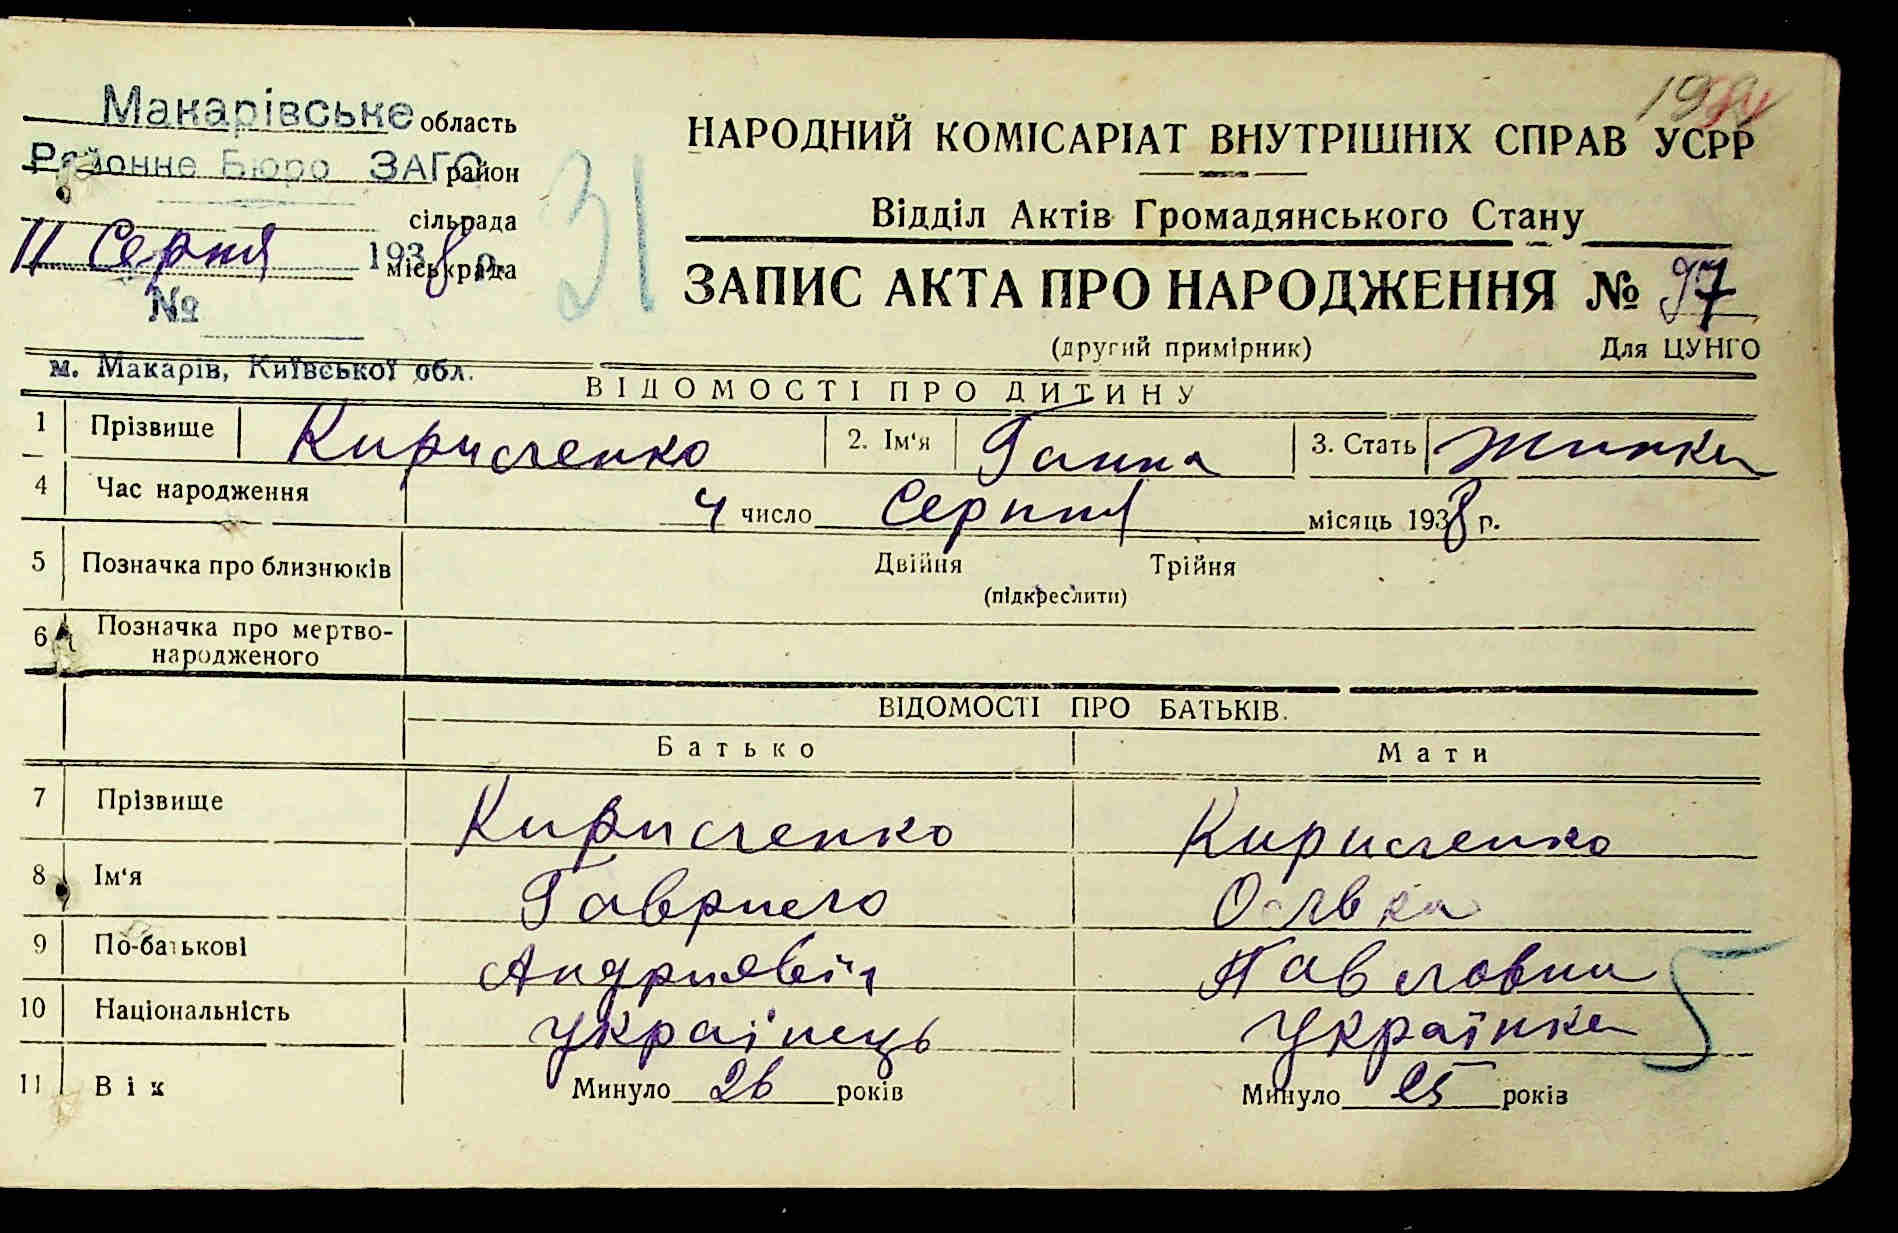 Макарівське область
Районне Бюро ЗАГС район
сільрада
11 Серпня 1938 р. міськрада
№
м. Макарів, Київської обл.
31
НАРОДНИЙ КОМІСАРІАТ ВНУТРІШНІХ СПРАВ УСРР
Відділ Актів Громадянського Стану
ЗАПИС АКТА ПРО НАРОДЖЕННЯ № 97
(другий примірник) Для ЦУНГО
ВІДОМОСТІ ПРО ДИТИНУ
1 Прізвище Кириленко 2. Ім'я Ганна 3. Стать Жинка
4 Час народження 4 число Серпня місяць 1938 р.
5 Позначка про близнюків Двійня Трійня
(підкреслити)
6 Позначка про мертво-
народженого
ВІДОМОСТІ ПРО БАТЬКІВ.
Батько Мати
7 Прізвище Кириленко Кириленко
8 Ім'я Гаврило
9 По-батькові Андриявіч Павловна
10 Національність українець українка
5
11 Вік Минуло 26 років Минуло 25 років